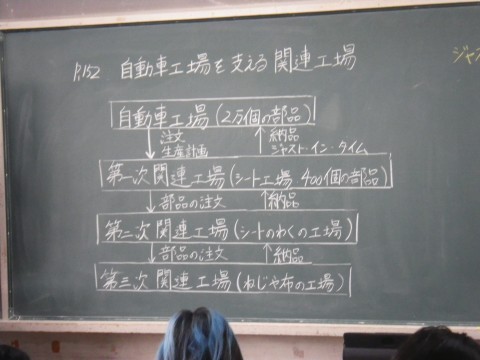 P.152 自動車工場を支える関連工場
ジャス
自動車工場(2万個の部品)
注文 納品
生産計画 ジャスト・イン・タイム
第一次関連工場(シート工場 400個の部品)
部品の注文 納品
第二次関連工場(シートのわくの工場)
部品の注文 納品
第三次関連工場(ねじや布の工場)